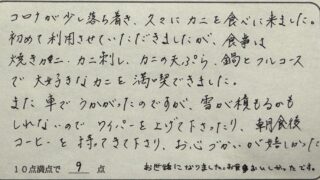 コロナが少し落ち着き、久々にカニを食べに来ました。
初めて利用させていただきましたが、食事は
焼きガニ、カニ刺し、カニの天ぷら、鍋とフルコース
で大好きなカニを満喫できました。
また車でうかがったのですが、雪が積もるかも
しれないのでワイパーを上げて下さったり、朝食後
コーヒーを持ってきて下さり、お心づかいが嬉しかった
10点満点で 9 点
お世話になりました。お食事もおいしかったです。